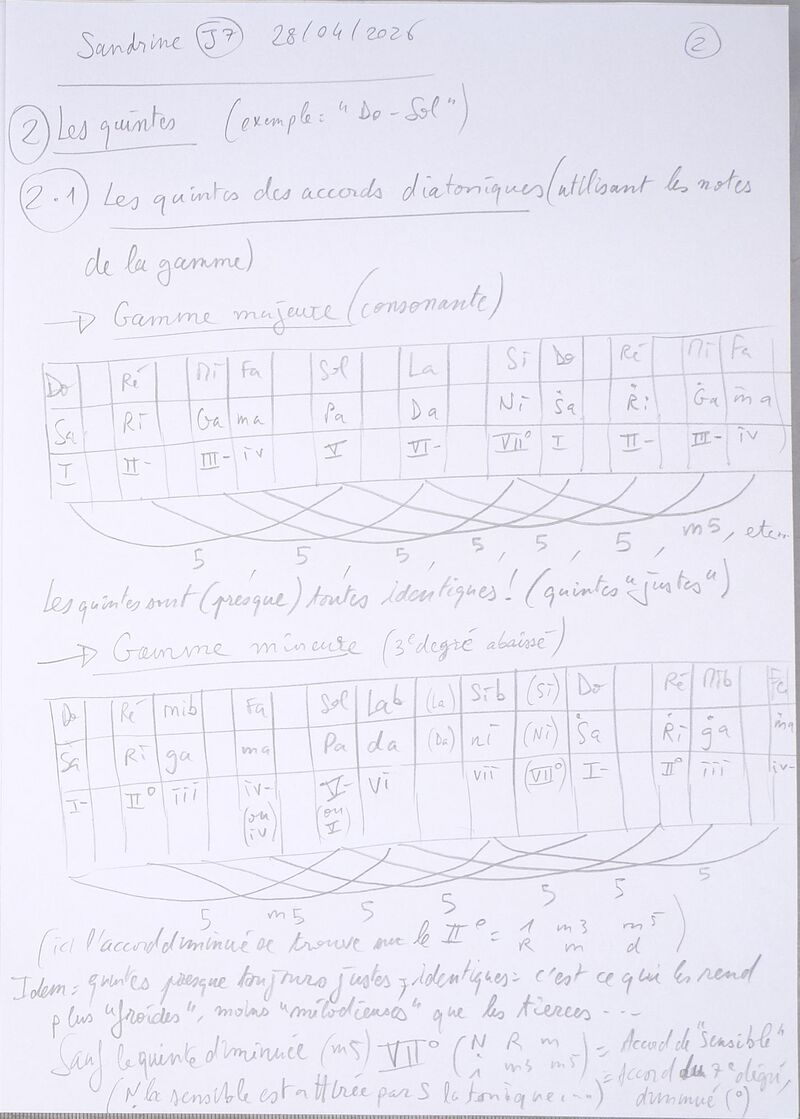 Sandrine J7 28/04/2026 2
2 Les quintes (exemple = "Do - Sol")
2.1 Les quintes des accords diatoniques (utilisant les notes
de la gamme)
→ Gamme majeure (consonante)
Do Ré Mi Fa Sol La Si Do Ré Mi Fa
Sa Ri Ga ma Pa Da Ni Ṡa Ṙi Ġa ṁa
I II- III- iv V VI- VII° I II- III- iv
5 , 5 , 5 , 5 , 5 , 5 , m5, etc...
Les quintes sont (presque) toutes identiques ! (quintes "justes")
→ Gamme mineure (3e degré abaissé)
Do Ré mib Fa Sol Lab (La) Sib (Si) Do Ré Mib Fa
Sa Ri ga ma Pa da (Da) ni (Ni) Ṡa Ṙi ġa ṁa
I- II° iii iv- V- vi vii (VII°) I- II° iii iv-
(ou iv) (ou V)
5 m5 5 5 5 5 5
(ici l'accord diminué se trouve sur le II° = 1 m3 m5
R m d)
Idem = quintes presque toujours justes, identiques = c'est ce qui les rend
plus "froides", moins "mélodieuses" que les tierces ...
Sauf la quinte diminuée (m5) VII° (N R m = Accord de "sensible"
1 m3 m5) = Accord du 7e degré,
(N la sensible est attirée par S la tonique ...) diminué (°)